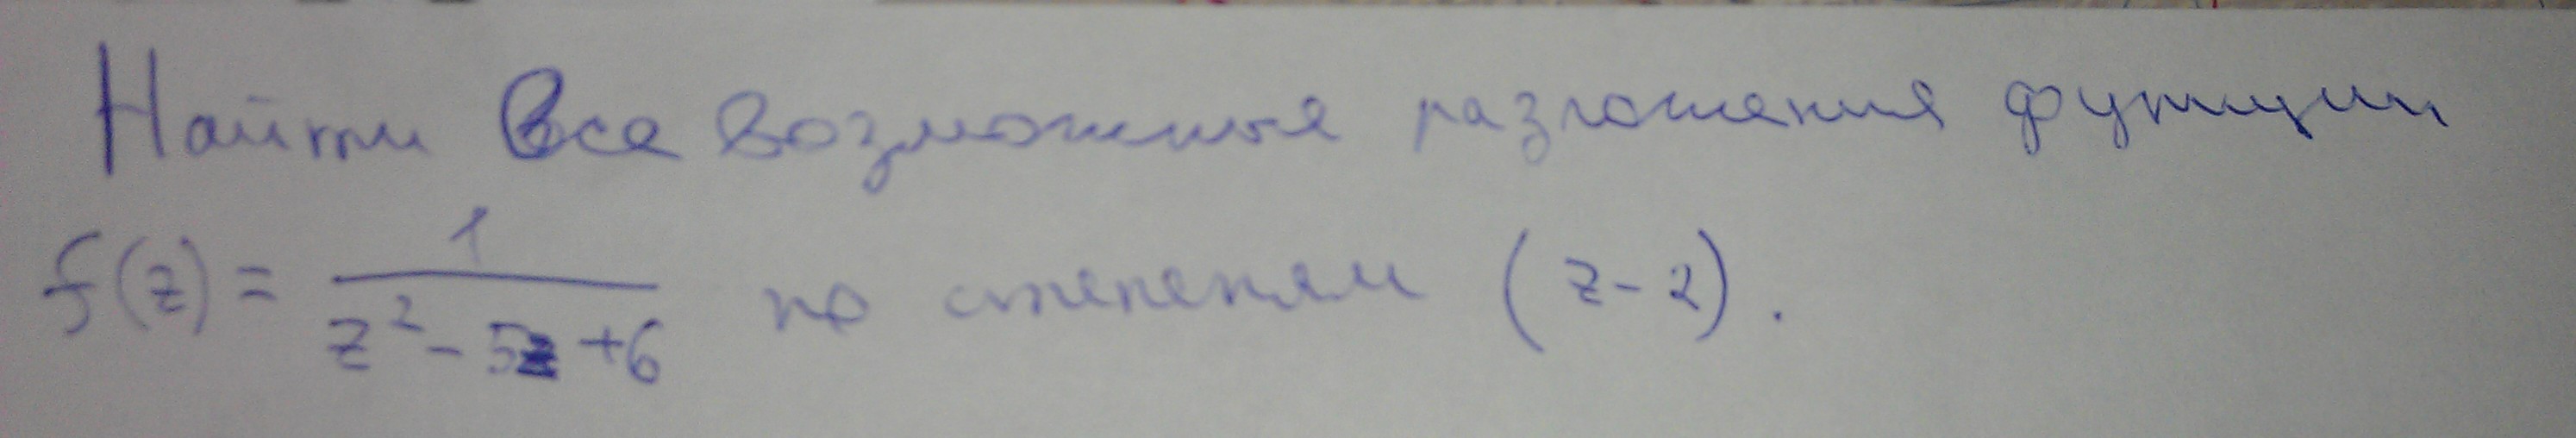 Найти все возможные разложения функции
f(z) = 1/(z² - 5z + 6) по степеням (z - 2).